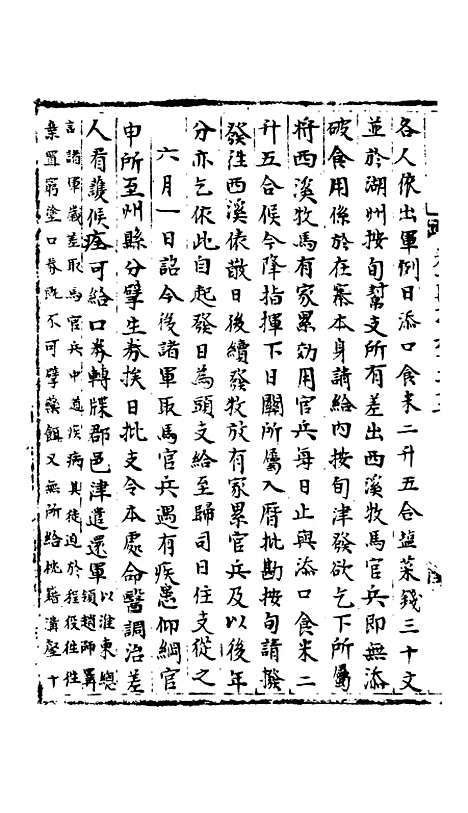 各人依出軍例日添口食米二升五合鹽菜錢三十文
並於湖州按旬幫支所有差出西溪牧馬官兵即無添
破食用係於在寨本身請給内按旬津發欲乞下所屬
將西溪牧馬有家累効用官兵每日止與添口食米二
升五合候今降指揮下日關所屬入曆批勘按旬請撥
發往西溪俵散日後續發牧放有家累官兵及以後年
分亦乞依此自起發日為頭支給至歸司日住支從之
六月一日詔今後諸軍取馬官兵遇有疾患仰綱官
申所至州縣分擘生券挨日批支令本處命醫調治差
人看護候痊可給口券轉牒郡邑津遣還軍以淮東總
領趙師𢍰
言諸軍歲差取馬官兵中道疾病其徒迫於程役往往
棄置窮塗口券既不可擘藥餌又無所給枕藉溝壑十